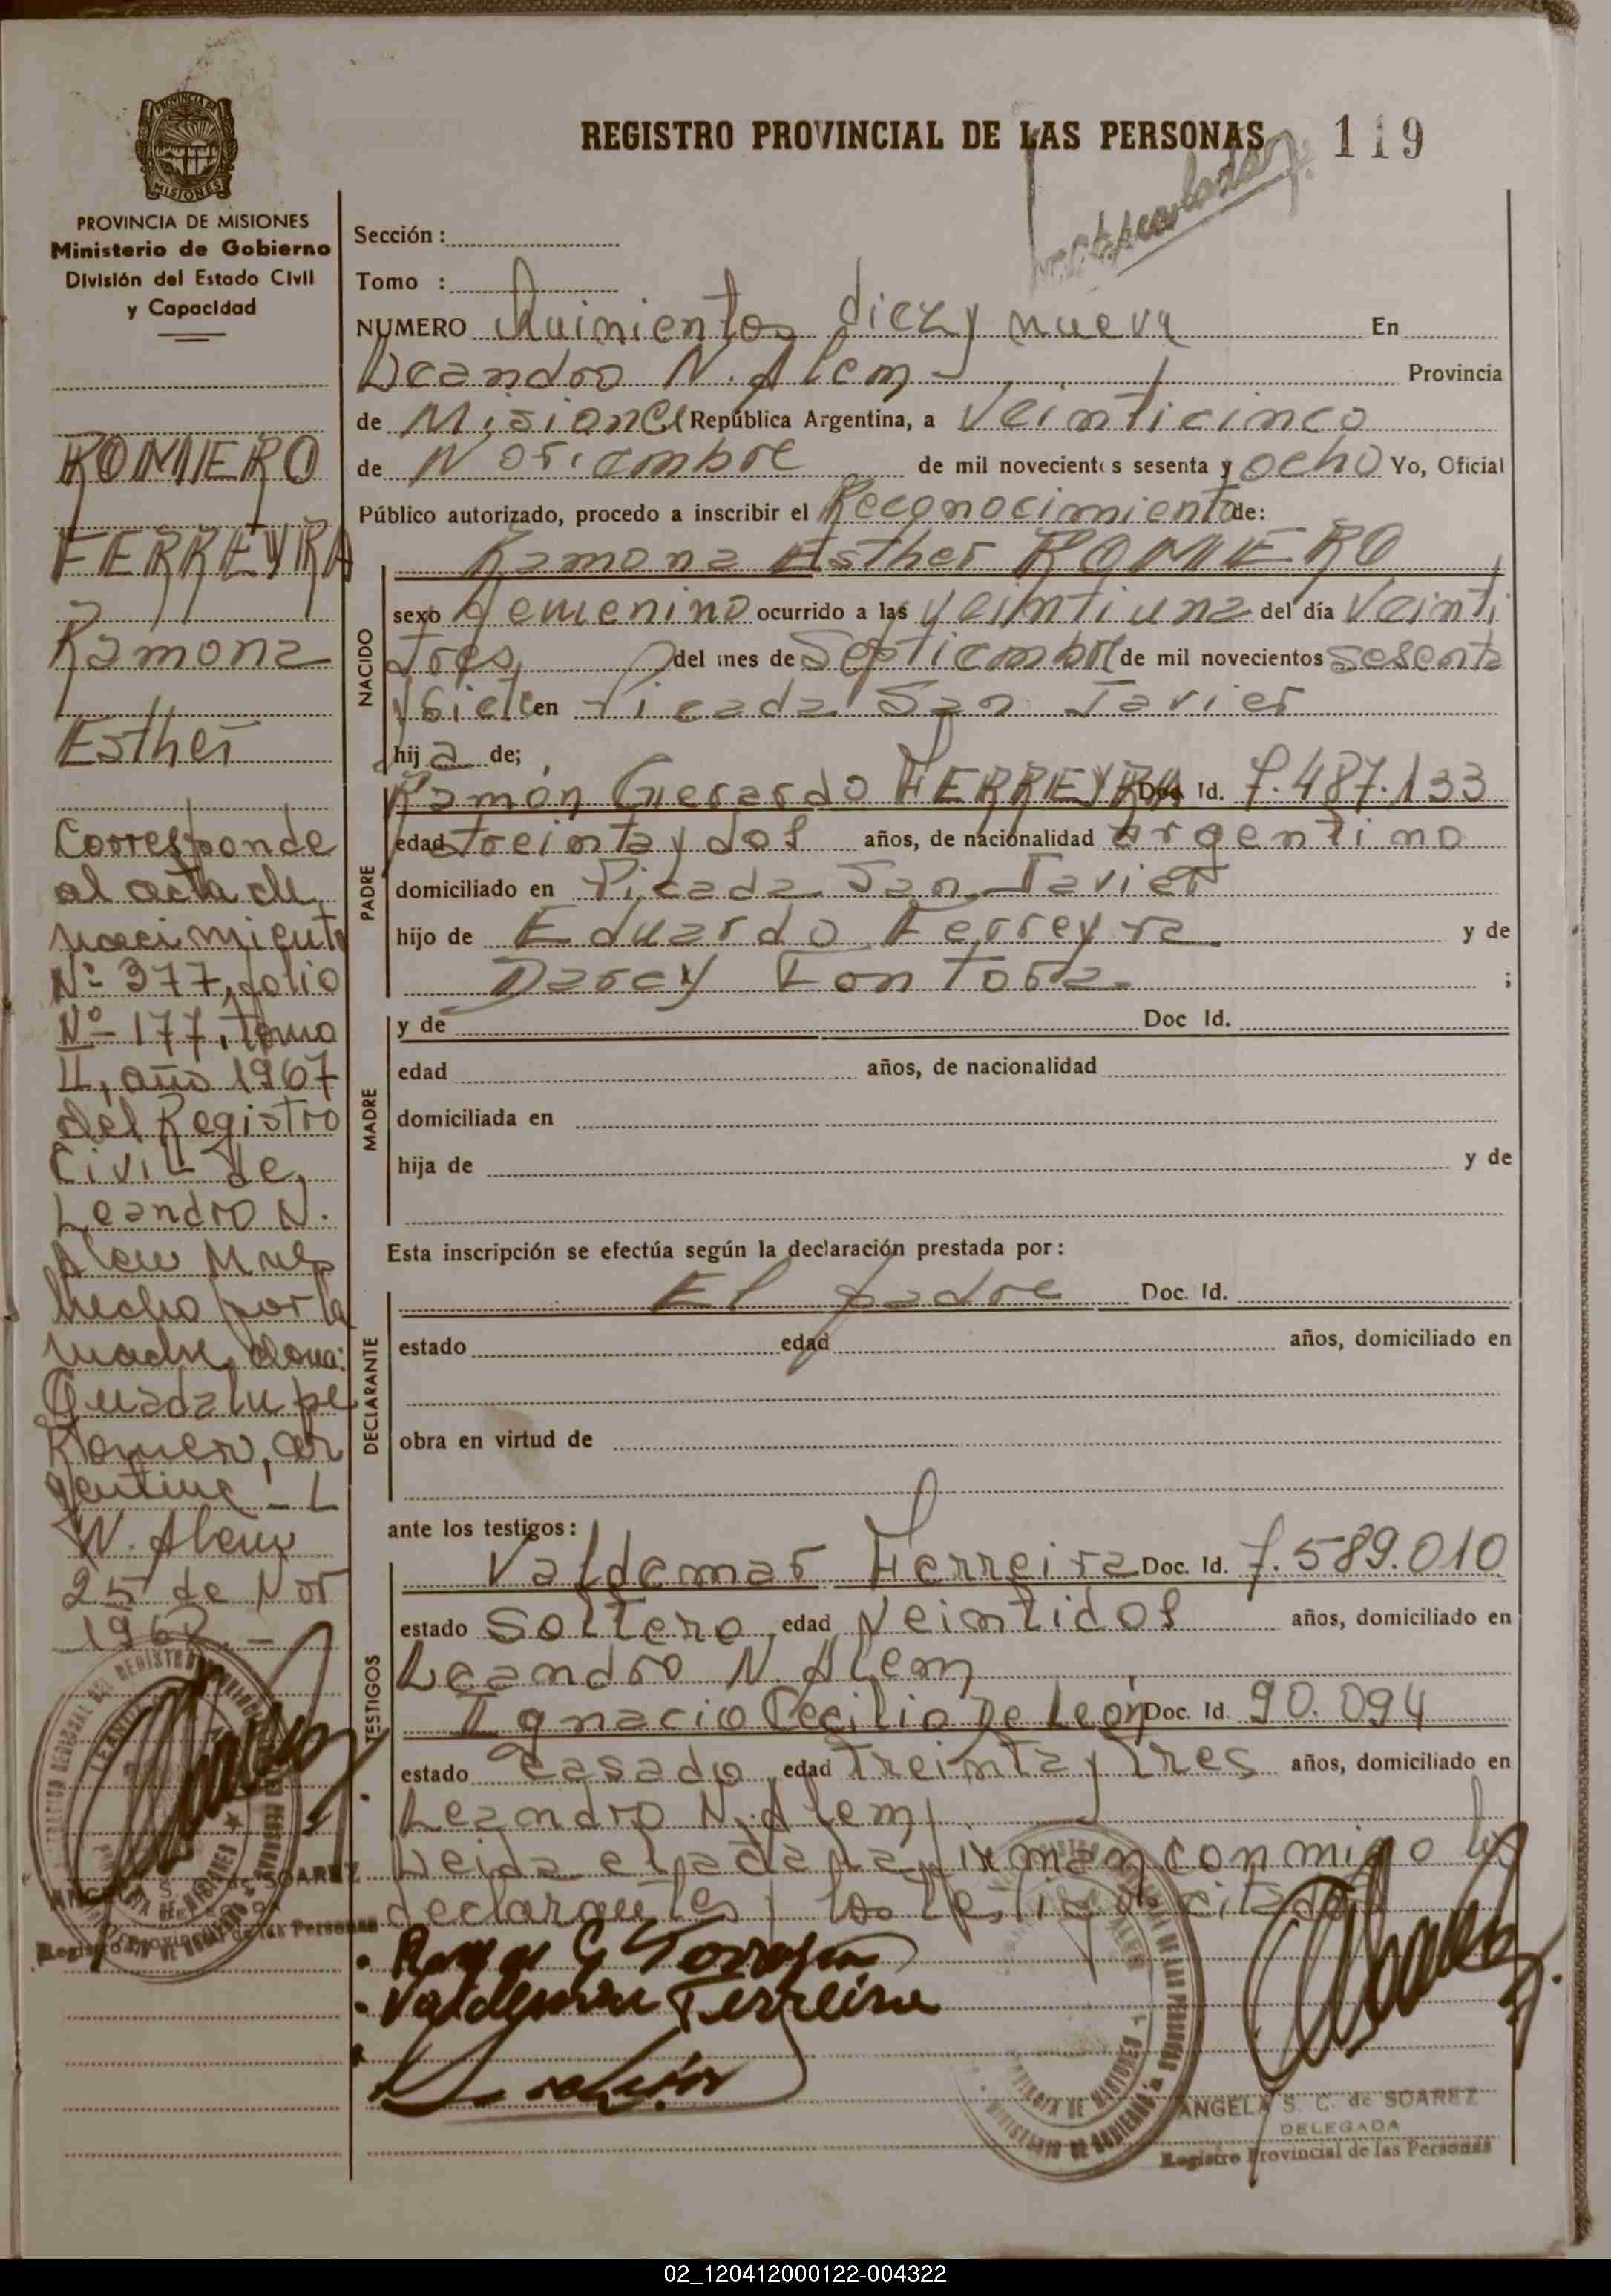 REGISTRO PROVINCIAL DE LAS PERSONAS 119
PROVINCIA DE MISIONES
PROVINCIA DE MISIONES
Ministerio de Gobierno
División del Estado Civil
y Capacidad
ROMERO
FERREYRA
Ramona
Esther
Corresponde
al acta de
nacimiento
Nº 377, folio
Nº 177, tomo
II, año 1967
del Registro
Civil de
Leandro N.
Alem Mnes
hecho por la
madre, dona:
Guadalupe
Romero, ar
gentina - L
N. Alem
25 de Nov
1968. -
Sección :
Tomo :
NUMERO Quinientos diez y nueve En
Leandro N. Alem - Provincia
de Misiones República Argentina, a Veinticinco
de Noviembre de mil novecientos sesenta y ocho Yo, Oficial
Público autorizado, procedo a inscribir el Reconocimiento de:
Ramona Esther ROMERO
NACIDO
sexo femenino ocurrido a las veintiuna del día Veinti
tres, del mes de Septiembre de mil novecientos sesenta
y siete en Picada San Javier
hija de;
Ramón Gerardo FERREYRA Doc Id. 7.487.133
PADRE
edad treinta y dos años, de nacionalidad argentino
domiciliado en Picada San Javier
hijo de Eduardo Ferreyra y de
Darcy Fontora ;
MADRE
y de Doc Id.
edad años, de nacionalidad
domiciliada en
hija de y de
Esta inscripción se efectúa según la declaración prestada por :
El padre Doc. Id.
DECLARANTE
estado edad años, domiciliado en
obra en virtud de
ante los testigos :
Valdemar Ferreira Doc. Id. 7.589.010
TESTIGOS
estado Soltero, edad Veintidos años, domiciliado en
Leandro N. Alem
Ignacio Cecilio De León Doc. Id. 90.094
estado Casado, edad treinta y tres años, domiciliado en
Leandro N. Alem
Leida el acta la firman conmigo los
declarantes y los testigos citados
Valdemar Ferreira
ANGELA S. C. de SUAREZ
DELEGADA
Registro Provincial de las Personas
02_120412000122-004322